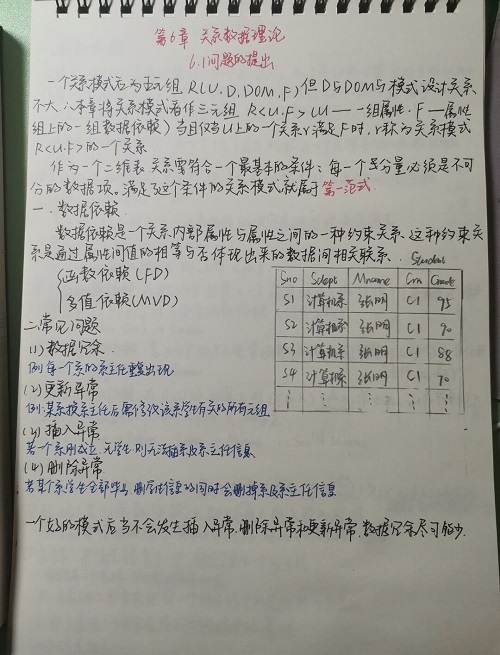 第6章 关系数据理论
6.1 问题的提出
一个关系模式应为五元组 R(U, D, DOM, F) 但D与DOM与模式设计关系
不大 ∴本章将关系模式看作三元组 R<U,F> (U — 一组属性, F — 属性
组上的一组数据依赖) 当且仅当U上的一个关系r满足F时, r称为关系模式
R<U,F>的一个关系
作为一个二维表, 关系需符合一个最基本的条件: 每一个分量必须是不可
分的数据项. 满足了这个条件的关系模式就属于第一范式.
一. 数据依赖
数据依赖是一个关系内部属性与属性之间的一种约束关系. 这种约束关
系是通过属性间值的相等与否体现出来的数据间相关联系.
函数依赖 (FD)
多值依赖 (MVD)
Student
Sno Sdept Mname Cno Grade
S1 计算机系 张明 C1 95
S2 计算机系 张明 C1 90
S3 计算机系 张明 C1 88
S4 计算机系 张明 C1 70
⋮ ⋮ ⋮ ⋮ ⋮
二. 常见问题
(1) 数据冗余.
例: 每个系的系主任重复出现
(2) 更新异常
例: 某系换系主任后需修改该系学生有关的所有元组
(3) 插入异常
若一个系刚成立, 无学生, 则无法插系及系主任信息
(4) 删除异常
若某个系学生全部毕业, 删学生信息的同时会删掉系及系主任信息
一个好的模式应当不会发生插入异常, 删除异常和更新异常, 数据冗余尽可能少.